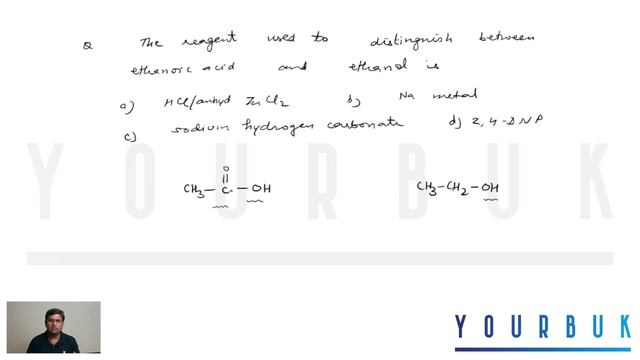 Q The reagent used to distinguish between
ethanoic acid and ethanol is
a) HCl/anhyd ZnCl2 b) Na metal
c) sodium hydrogen carbonate d) 2,4-DNP
O
CH3-C-OH CH3-CH2-OH
YOURBUK
YOURBUK